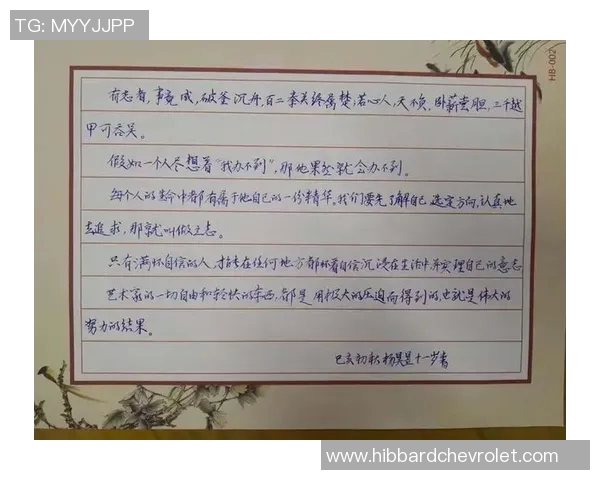 TG: MYYJJPP
HB-002
有志者，事竟成，破釜沉舟，百二秦关终属楚；苦心人，天不负，卧薪尝胆，三千越
甲可吞吴。
假如一个人尽想着“我办不到”，那他果然就会办不到。
每个人的生命中都有属于他自己的一份精华。我们要先了解自己，选定方向，认真地
去追求，那就叫做立志。
只有满怀自信的人，才能在任何地方都怀着自信沉浸在生活中并实理自己的意志
艺术家的一切自由和轻快的东西，都是用极大的压迫而得到的，也就是伟大的
努力的结果。
己亥初秋杨昊昱十一岁书
www.hibbardchevrolet.com